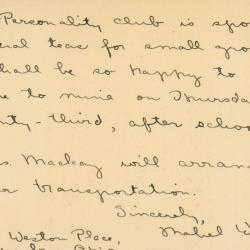 Personality club is spo
cial teas for small gro
hall be so happy to
e to mine on Thursda
nty-third, after schoo
s. Mackay will arran
r transportation.
Sincerely,
Weston Place, Mabel